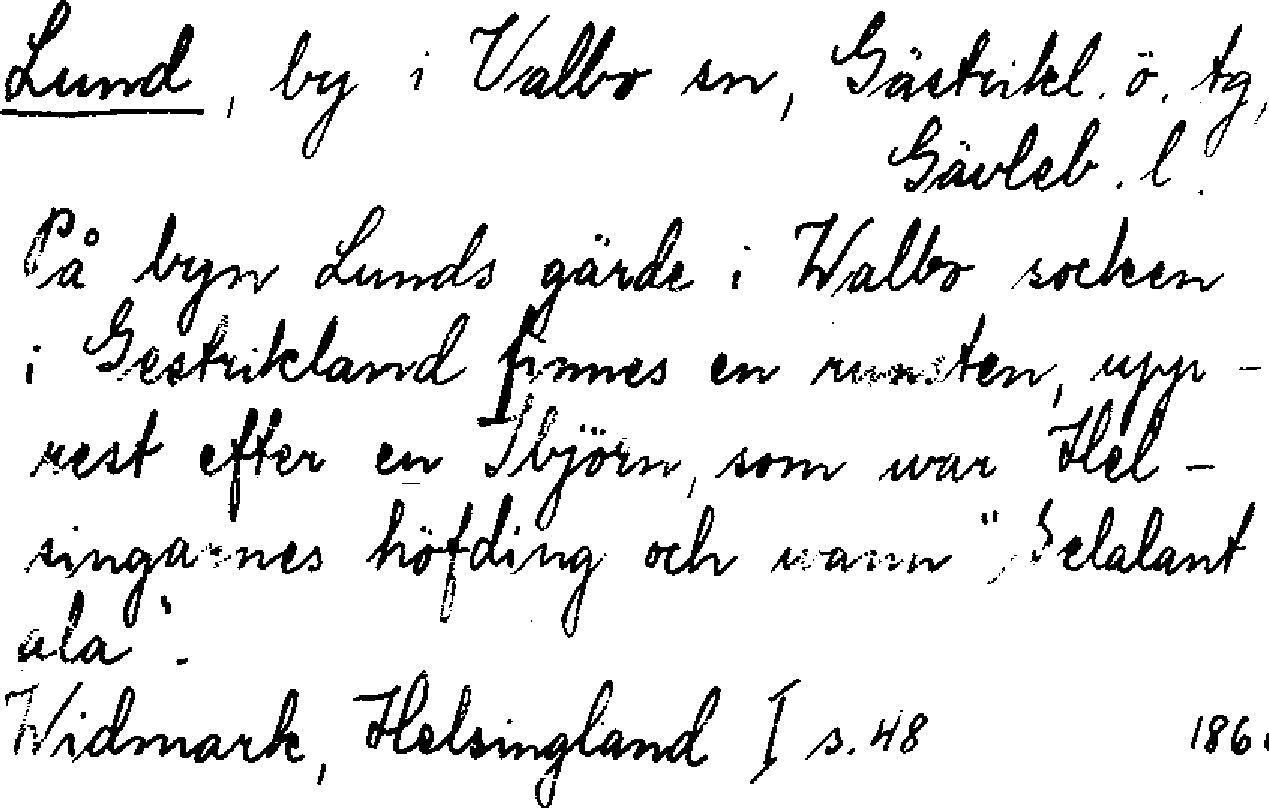 Lund, by i Valbo sn, Gästrikl. ö. tg,
Gävleb. l.
På byn Lunds gärde i Walbo socken
i Gestrikland finnes en runsten, upp-
rest efter en Ibjörn, som war Hel-
singarnes höfding och wann "Selalant
ala".
Widmark, Helsingland I s. 48